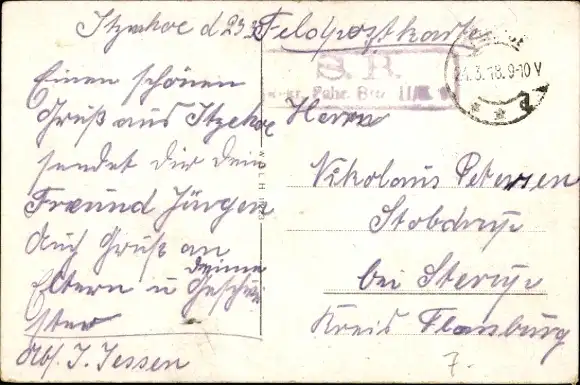 Itzehoe d 23.3. Feldpostkarte
Einen schönen
Gruß aus Itzehoe
sendet Dir Dein
Freund Jürgen
Auch Gruß an
Eltern u deine
Geschwi
ster
Abs. J. Jessen
S. B.
Fahr. Btr. II/
24.3.18.9-10V
Herrn
Nikolaus Petersen
Stobdrup
bei Sterup
Kreis Flensburg
7.